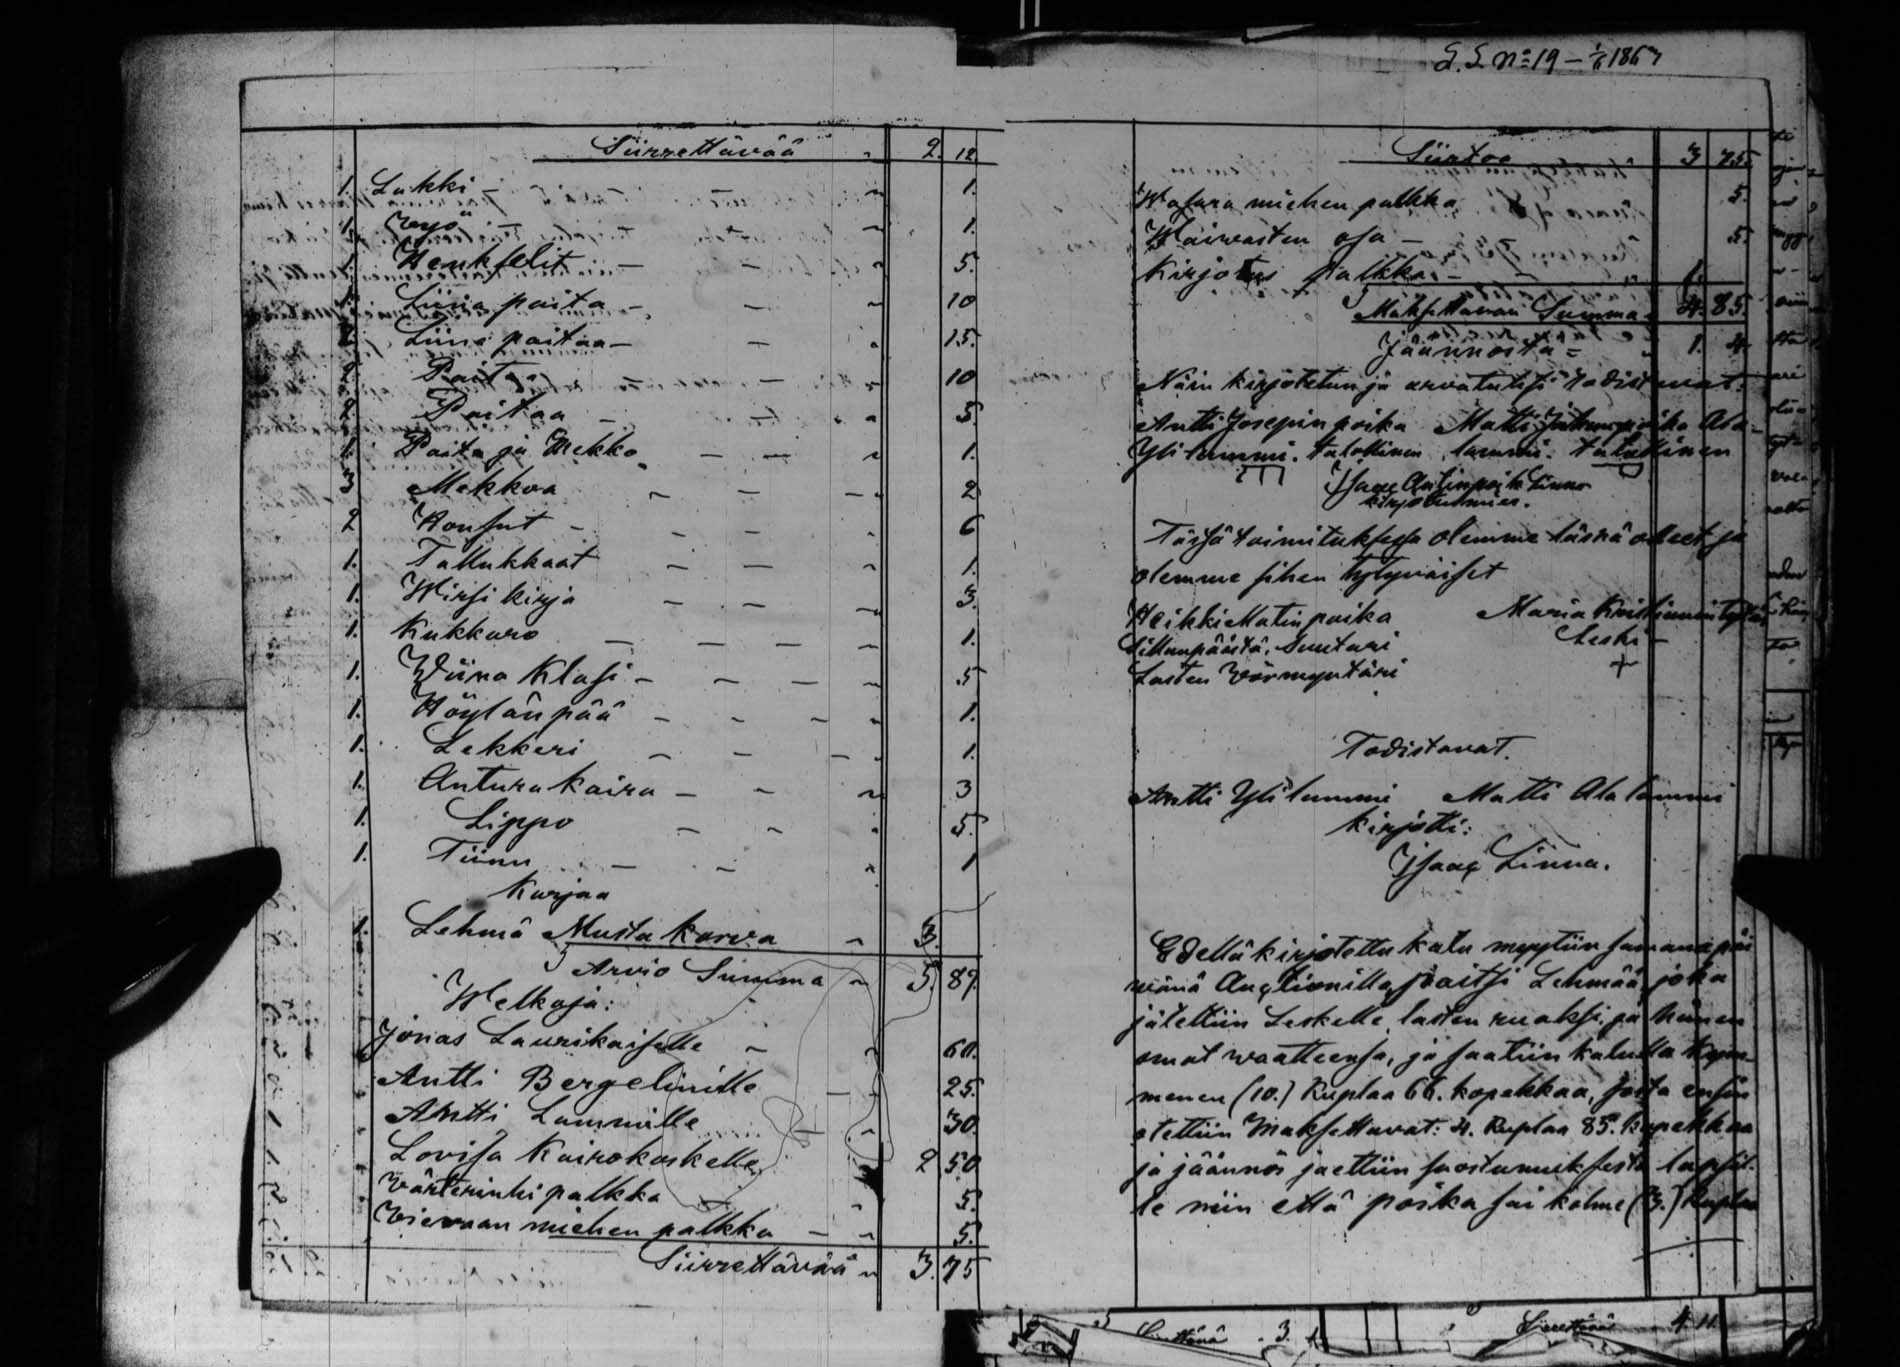 S. S. No 19 – 1/6 1867
Siirrettävää " 2. 12.
1. Lakki – " 1.
1. Wyö – " 1.
1. Henkselit – – " 5.
1. Liina paita – – " 10
2. Liina paitaa – – " 15.
2. Paitaa – " 10
2. Paitaa – – " 5.
1. Paita ja Mekko – – " 1.
3 Mekkoa – – " 2
2 Housut – – – " 6
1. Tallukkaat – – – " 1.
1. Wirsi kirja – – – " 3.
1. Kukkaro – – – – " 1.
1. Wiina Klasi – – – – " 5
1. Höylän pää – – – " 1.
1. Lekkeri – – – " 1.
1. Antura kaira – – " 3
1. Lippo – – " 5.
1. Tiinu – – " 1
Karjaa
1. Lehmä Musta korva " 3.
Arvio Summa " 5. 89.
Welkoja:
Jonas Laurikaiselle – " 60.
Antti Bergelinille – " 25.
Antti Lammille " 30.
Lovisa Kairokoskelle " 2 50
Värterinki palkka " 5.
Vieraan miehen palkka – " 5.
Siirrettävää " 3. 75
Siirtoa 3 75.
Wasara miehen palkka 5.
Waivasten osa – 5.
Kirjotus palkka – – 1.
Maksettavan Summa 4. 85.
Jäännöstä – 1. 4
Näin kirjotetun ja arvatuksi todistavat:
Antti Josepin poika Matti Juhanpoika Ala-
Yli lammi. talollinen lammi. talollinen
Isaac Antinpoik Linna
kirjotusmies.
Tässä toimituksessa olemme läsnä olleet ja
olemme siihen tytyväiset
Heikki Matin poika Maria Kristiinantytär
Suutari Leski –
Lasten Vörmyntäri +
Todistavat.
Antti Yli lammi Matti Ala lammi
kirjotti:
Isaac Linna.
Edellä kirjotettu kalu myytiin samana päi
vänä Auctionilla, paitsi Lehmää, joka
jätettiin Leskelle, lasten ruaksi, ja hänen
omat waatteensa, ja saatiin kalulla kym-
menen (10.) Ruplaa 66. kopekkaa, josta ensin
otettiin Maksettavat: 4. Ruplaa 85. kopekkaa
ja jäännös jaettiin suostumuksesta lapsil-
le niin että poika sai kolme (3.) Ruplaa
Siirettävä 3.
Siirettävää 4. 11